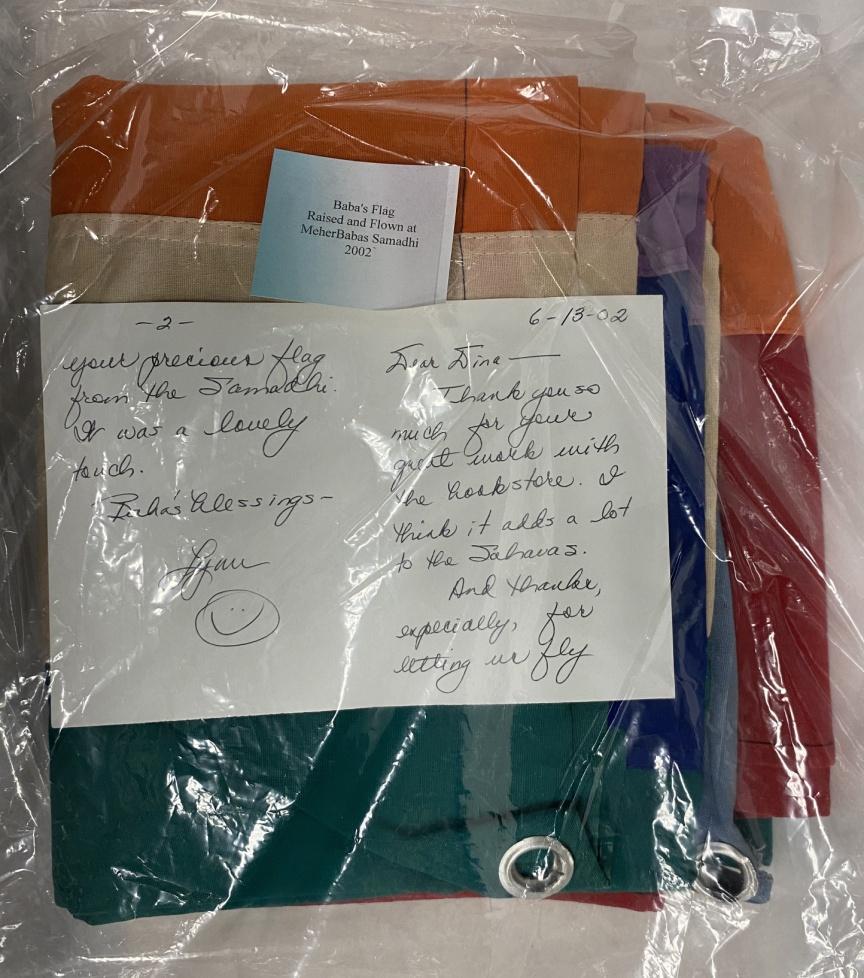 Baba's Flag
Raised and Flown at
MeherBabas Samadhi
2002
6-13-02
Dear Dina —
Thank you so
much for your
great work with
the bookstore. I
think it adds a lot
to the Sahavas.
And thanks,
especially, for
letting us fly
-2-
your precious flag
from the Samadhi.
It was a lovely
touch.
Baba's blessings-